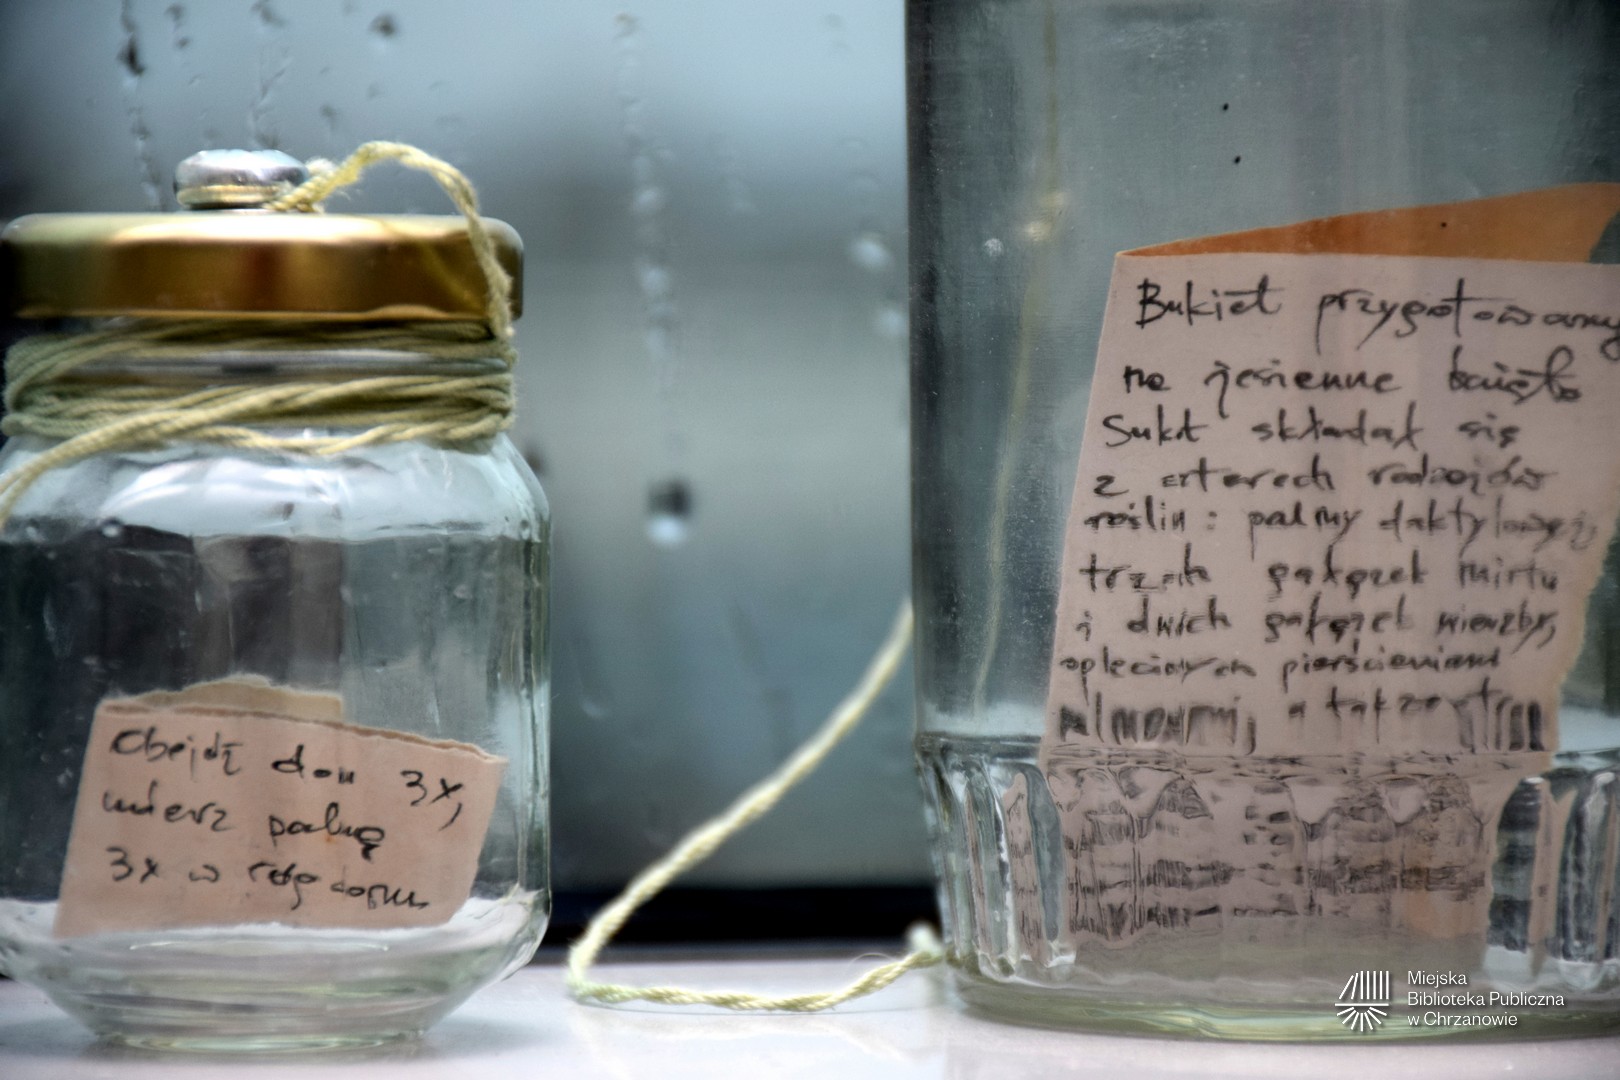 Obejdź dom 3x,
uderz palmą
3x w róg domu
Bukiet przygotowany
na jesienne święto
Sukot składał się
z czterech rodzajów
roślin: palmy daktylowej,
trzech gałązek mirtu
i dwóch gałązek wierzby,
oplecionych pierścieniami
palmowymi, a także
Miejska
Biblioteka Publiczna
w Chrzanowie